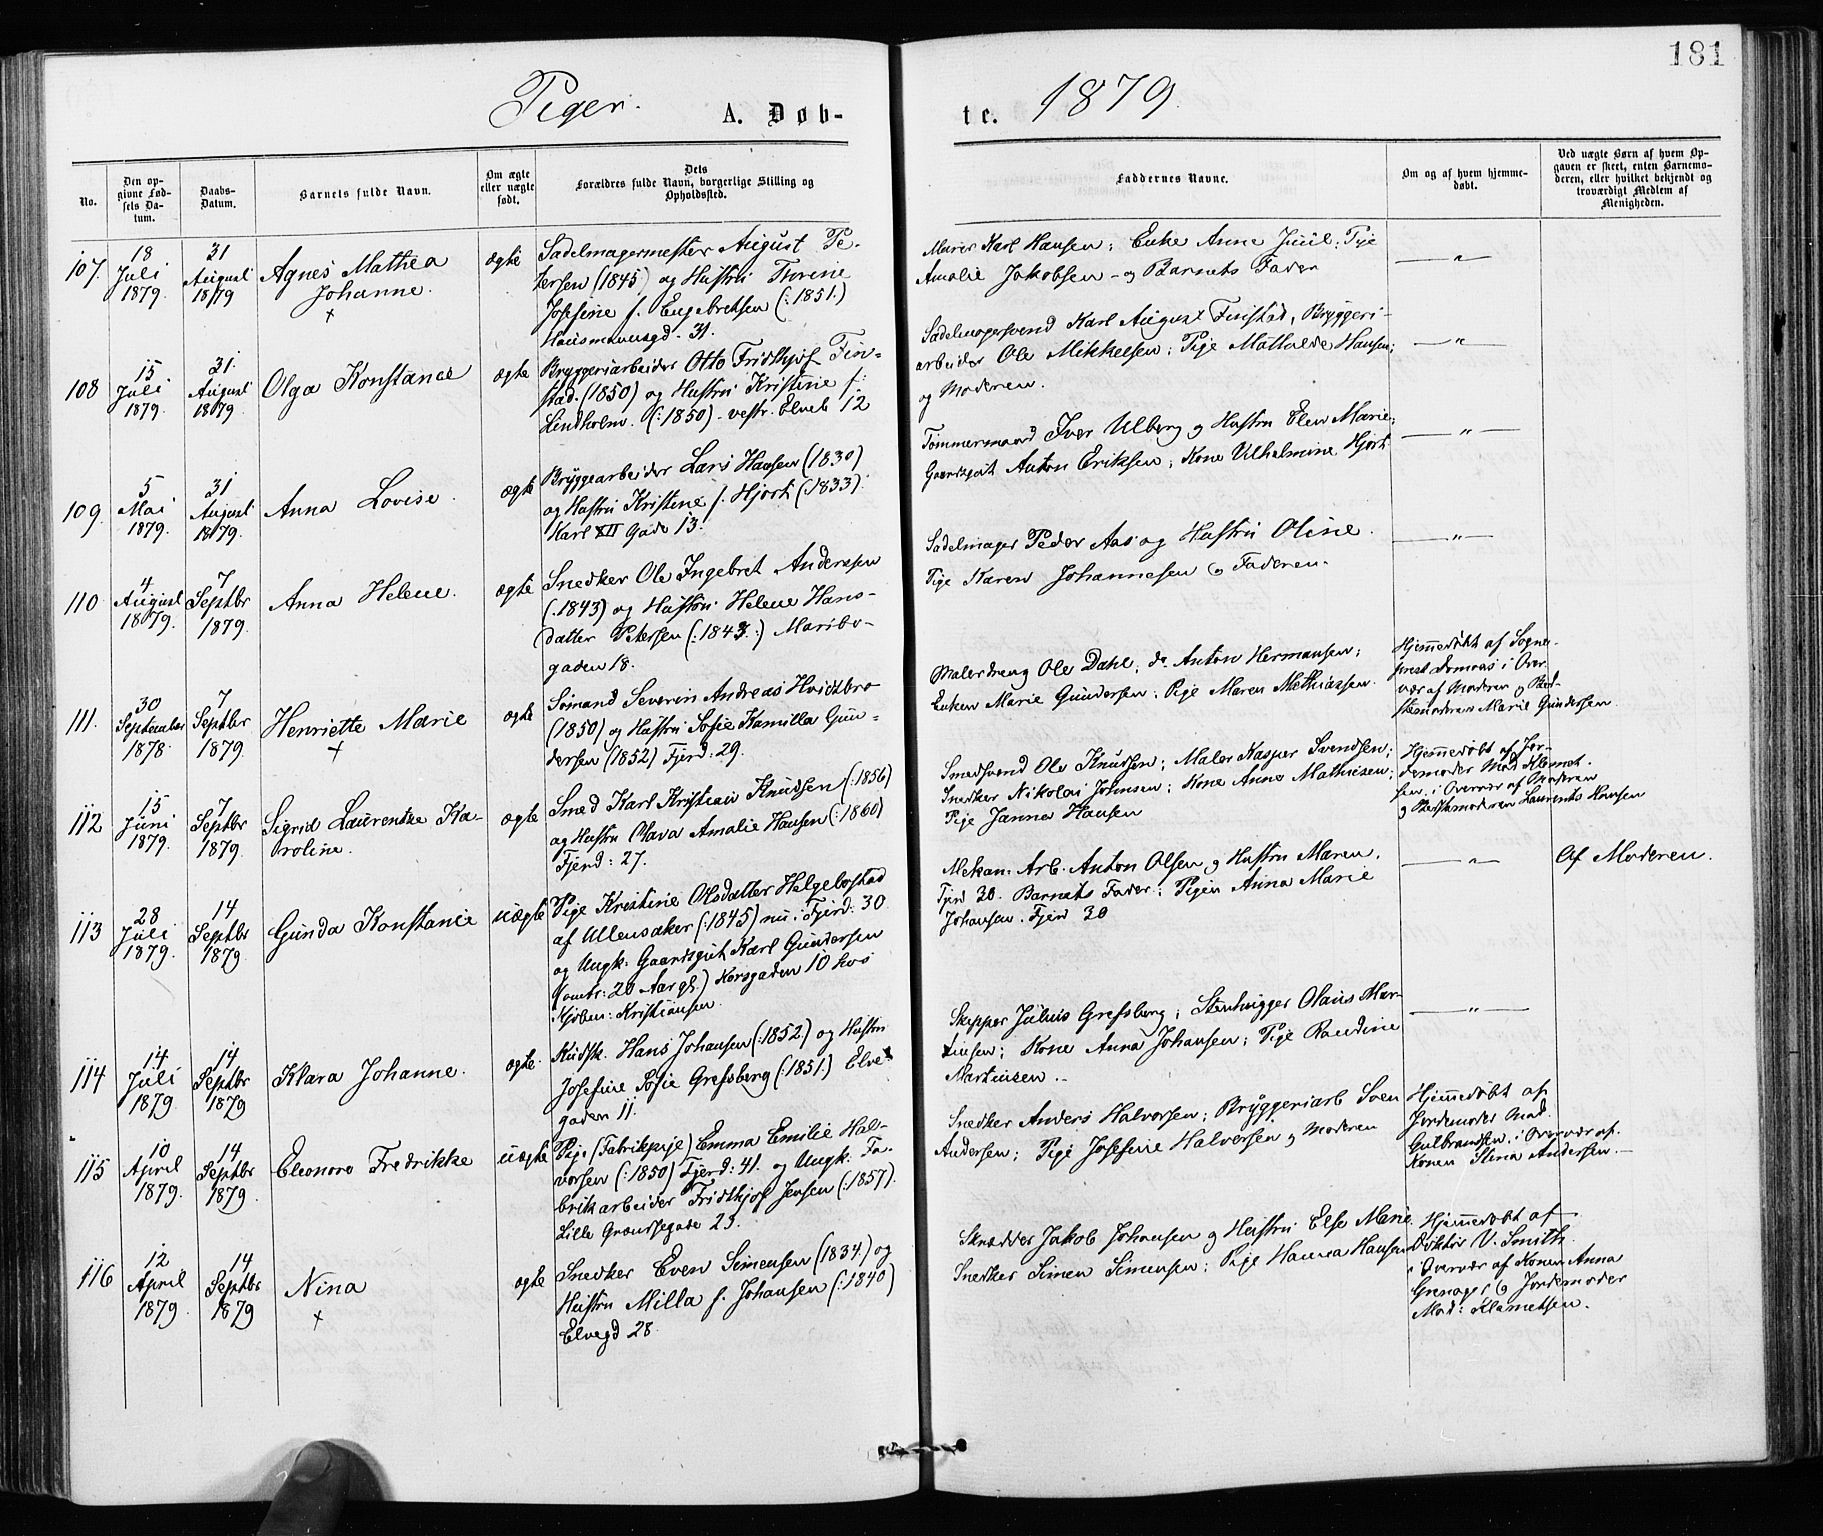 181
Piger. A. Døb-
te. 1879.
No.
Den op-
givne Fød-
sels Da-
tum.
Daabs-
Datum.
Barnets fulde Navn.
Om ægte
eller uægte
født.
Dets
Forældres fulde Navn, borgerlige Stilling og
Opholdssted.
Faddernes Navne.
Om og af hvem hjemme-
døbt.
Ved uægte Børn af hvem Op-
gaven er skeet, enten Barnemo-
deren, eller hvilket bekjendt og
troværdigt Medlem af
Menigheden.
107.
18
Juli
1879.
31
August
1879
Agnes Mathea
Johanne.
+
ægte
Sadelmagermester August Pe-
tersen (1845) og Hustru Thrine
Josefine f. Engebretsen (:1851.)
Hausmannsgd. 31.
Murer Karl Hansen; Enke Anne Juul; Pige
Amalie Jakobsen - og Barnets Fader
— " —
108
15
Juli
1879.
31.
August
1879.
Olga Konstance
ægte
Bryggeriarbeider Otto Fridthjof Fin-
stad. (1850) og Hustru Kristine f.
Lindholm. (:1850) - vestr. Elveb 12
Sadelmagersvend Karl August Finstad, Bryggeri-
arbeider Ole Mikkelsen; Pige Mathilde Hansen;
og Moderen.
— " —
109.
5
Mai
1879.
31
August
1879.
Anna Lovise.
ægte
Bryggearbeider Lars Hansen (1830)
og Hustru Kristine f. Hjort (:1833).
Karl XII Gade 13.
Tømmermand Iver Ulberg og Hustru Elen Marie;
Gaardsgut Anton Eriksen; Kone Vilhelmine Hjort.
— " —
110
4
August
1879.
7
Septbr
1879.
Anna Helene.
ægte
Snedker Ole Ingebret Anderssen
(:1843) og Hustru Helene Hans-
datter Petersen (:1843:) Maribo-
gaden 18.
Sadelmager Peder Aas og Hustru Oline.
Pige Karen Johannesen og Faderen.
— " —
111.
30
September
1878.
7
Septbr
1879.
Henriette Marie
+
ægte
Sømand Severin Andreas Hvidtbro
(1850) og Hustru Sofie Kamilla Gun-
dersen (1852) Fjerd: 29.
Malerdreng Ole Dahl; do Anton Hermansen;
Enken Marie Gundersen; Pige Maren Mathiassen.
Hjemmedøbt af Sogne-
prest Lomras i Over-
vær af Moderen og Bed-
stemoderen Marie Gundersen.
112
15
Juni
1879.
7
Septbr
1879.
Sigrid Laurentze Ka-
roline.
ægte
Smed Karl Kristian Knudsen (:1856)
og Hustru Olava Amalie Hansen (:1860)
Fjerd: 27.
Smedsvend Ole Knudsen; Maler Kasper Svendsen;
Snedker Nikolai Johnsen; Kone Anne Mathisen;
Pige Janna Hansen
Hjemmedøbt af Jor-
demoder Mad. Klemet-
sen, i Overvær af Moderen
og Bedstemoderen Laurents Hansen
113
28
Juli
1879.
14
Septbr
1879.
Gunda Konstance
uægte
Pige Kristine Olsdatter Helgebostad
af Ullensaker (:1845) nu i Fjerd: 30
og Ungk: Gaardsgut Karl Gundersen
(omtr: 20 Aar gl.) Korsgaden 10 hos
Kjøbm: Kristiansen.
Mekan: Arb. Anton Olsen og Hustru Maren,
Fjerd 30. Barnets Fader; Pigen Anna Marie
Johansen. Fjerd 30
— " —
Af Moderen.
114
14
Juli
1879.
14
Septbr
1879
Klara Johanne.
ægte
Kudsk. Hans Johansen (:1852) og Hustru
Josefine Sofie Grefsberg (:1851.) Elve-
gaden 11.
Skipper Julius Grefsberg; Stenhugger Olaus Mar-
tinsen; Kone Anna Johansen; Pige Randine
Martinsen.
— " —
115
10
April
1879.
14
Septbr
1879.
Eleonora Fredrikke
uægte
Pige (Fabrikpige) Emma Emilie Hal-
vorsen (:1850) Fjerd: 41. og Ungk: Fa-
brikarbeider Fridthjof Jensen (:1857).
Lille Grændsegade 23.
Snedker Anders Halvorsen; Bryggeriarb Sven
Andersen; Pige Josefine Halvorsen og Moderen
Hjemmedøbt af
Jordemoder Mad.
Gulbrandsen, i Overvær af
Konen Stina Andersen.
116
12
April
1879
14
Septbr
1879
Nina
+
ægte
Snedker Even Simensen (1834.) og
Hustru Milla f. Johansen (:1840)
Elvegd 28.
Skrædder Jakob Johansen og Hustru Else Marie
Snedker Simen Simensen; Pige Hanna Hansen
Hjemmedøbt af
Doktor V. Smith.
i Overvær af Konen Anna
Grenager og Jordemoder
Mad: Klemetsen.